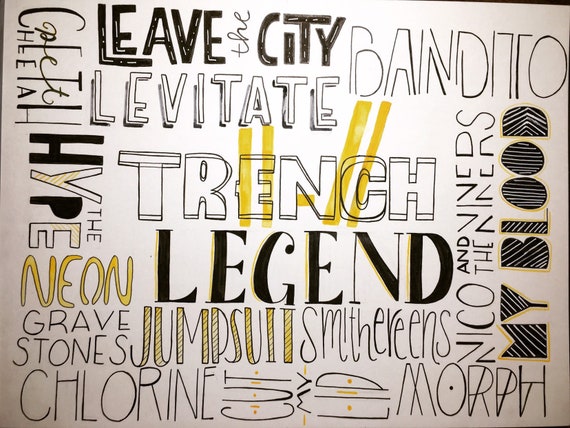 LEAVE the CITY
BANDITO
CHEETAH
LEVITATE
TRENCH
THE HYPE
LEGEND
NICO AND THE NINERS
MY BLOOD
NEON
GRAVE
STONES
JUMPSUIT
Smithereens
CHLORINE
CUT
MY
LIP
MORPH